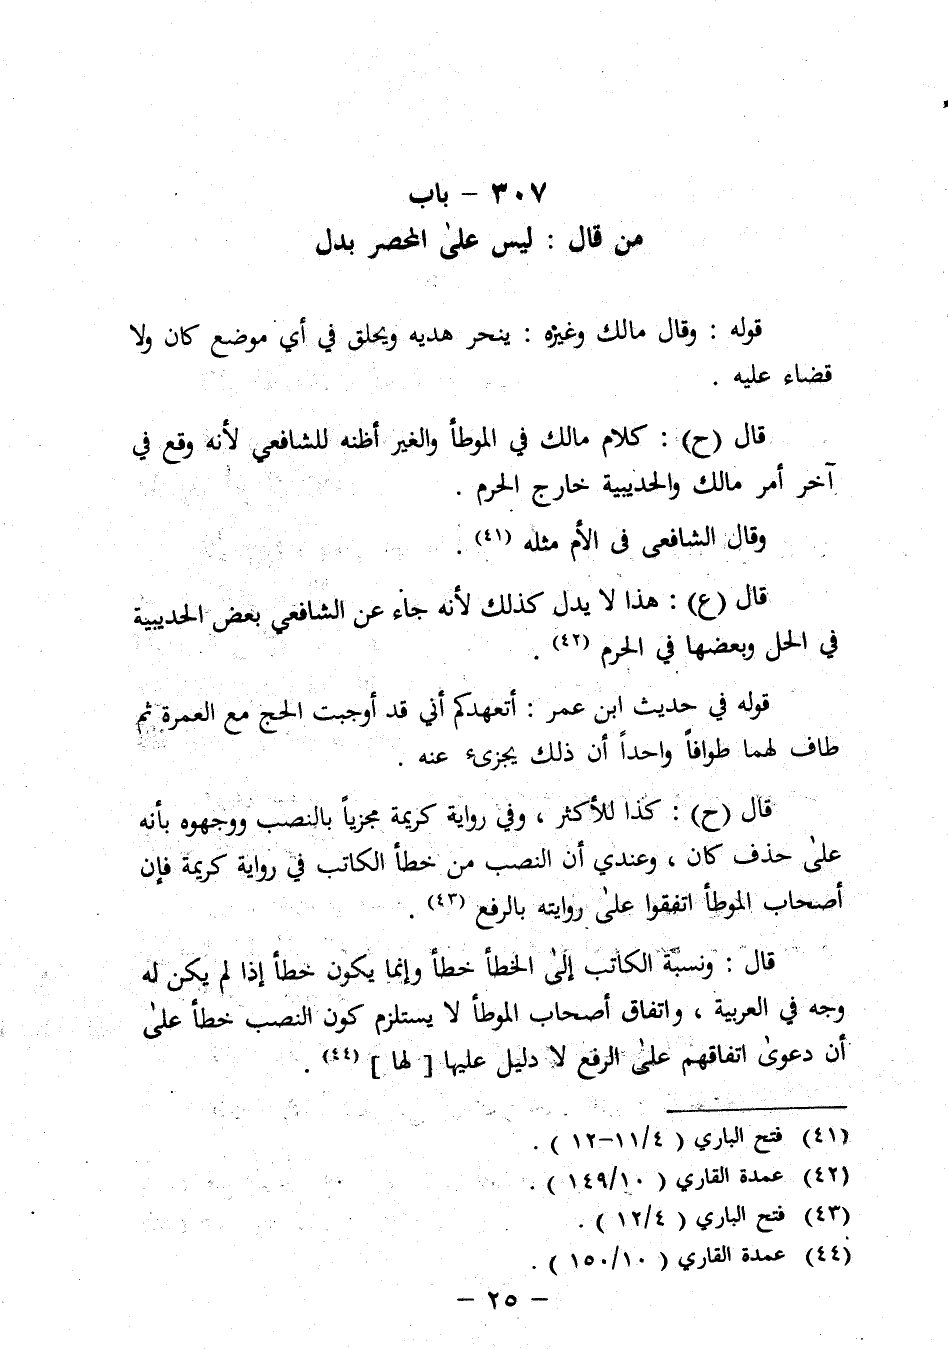 ٣٠٧ - باب
من قال : ليس علىٰ المحصر بدل
قوله : وقال مالك وغيره : ينحر هديه ويحلق في أي موضع كان ولا
قضاء عليه .
قال (ح) : كلام مالك في الموطأ والغير أظنه للشافعي لأنه وقع في
آخر أمر مالك والحديبية خارج الحرم .
وقال الشافعى فى الأم مثله (٤١) .
قال (ع) : هذا لا يدل كذلك لأنه جاء عن الشافعي بعض الحديبية
في الحل وبعضها في الحرم (٤٢) .
قوله في حديث ابن عمر : أتعهدكم أني قد أوجبت الحج مع العمرة ثم
طاف لهما طوافاً واحداً أن ذلك يجزىء عنه .
قال (ح) : كذا للأكثر ، وفي رواية كريمة مجزياً بالنصب ووجهوه بأنه
علىٰ حذف كان ، وعندي أن النصب من خطأ الكاتب في رواية كريمة فإن
أصحاب الموطأ اتفقوا علىٰ روايته بالرفع (٤٣) .
قال : ونسبة الكاتب إلىٰ الخطأ خطأ وإنما يكون خطأ إذا لم يكن له
وجه في العربية ، واتفاق أصحاب الموطأ لا يستلزم كون النصب خطأ علىٰ
أن دعوىٰ اتفاقهم علىٰ الرفع لا دليل عليها [ لها ] (٤٤) .
(٤١) فتح الباري ( ٤/١١-١٢ ) .
(٤٢) عمدة القاري ( ١٠/١٤٩ ) .
(٤٣) فتح الباري ( ٤/١٢ ) .
(٤٤) عمدة القاري ( ١٠/١٥٠ ) .
- ٢٥ -